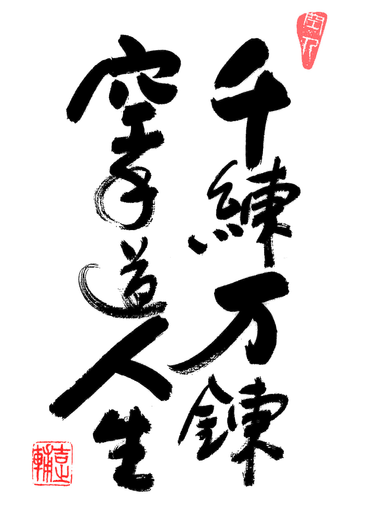 千練万錬
空手道人生